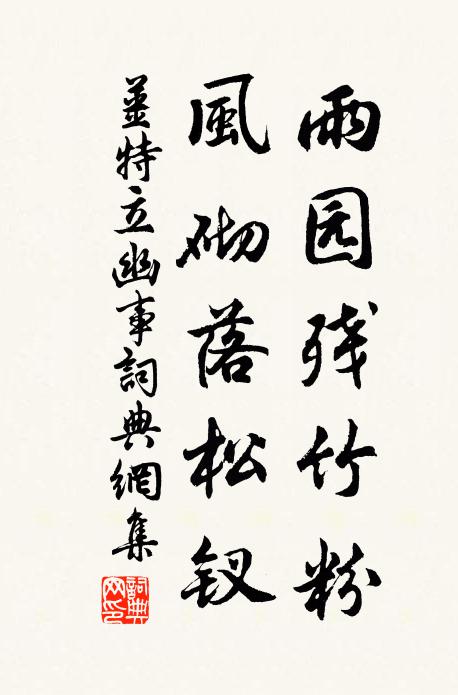 雨园残竹粉
風砌落松钗
姜特立幽事詞典網集
詞典網印